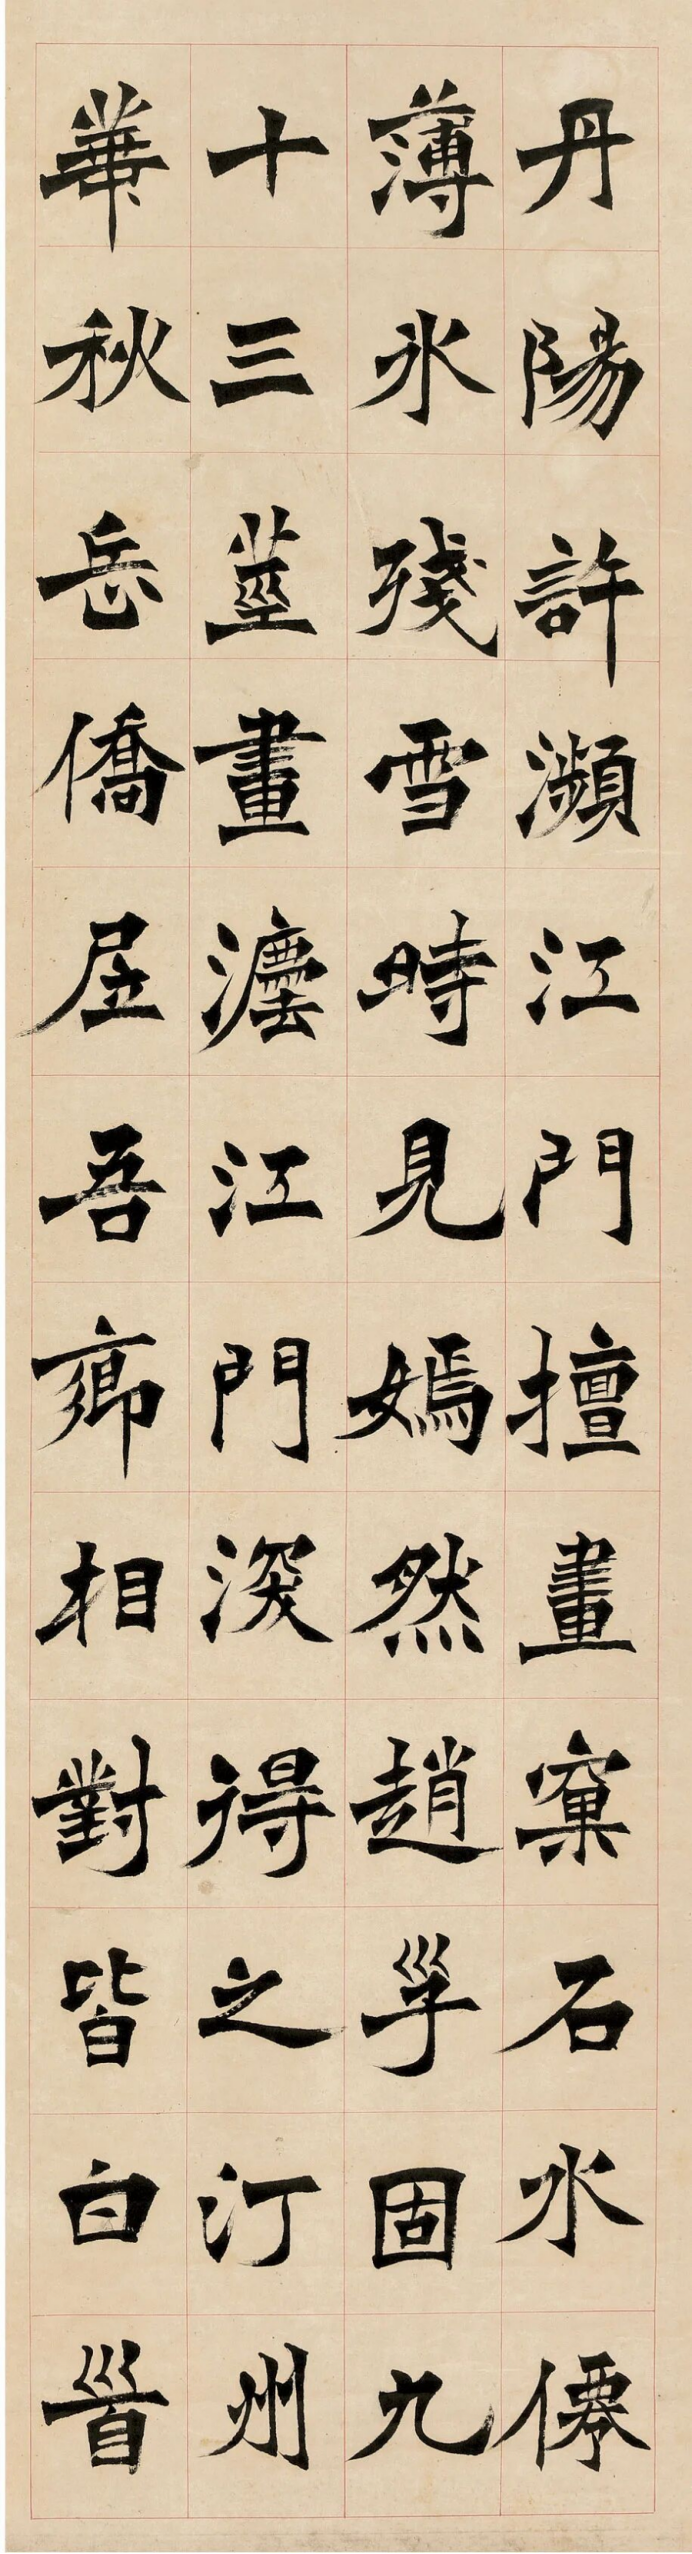 丹陽許瀕江門擅畫窠石水僊
薄氷殘雪時見嫣然趙㜽固九
十三莖畫灋江門深得之汀州
華秋岳僑㞐吾鄉相對皆白𩠐